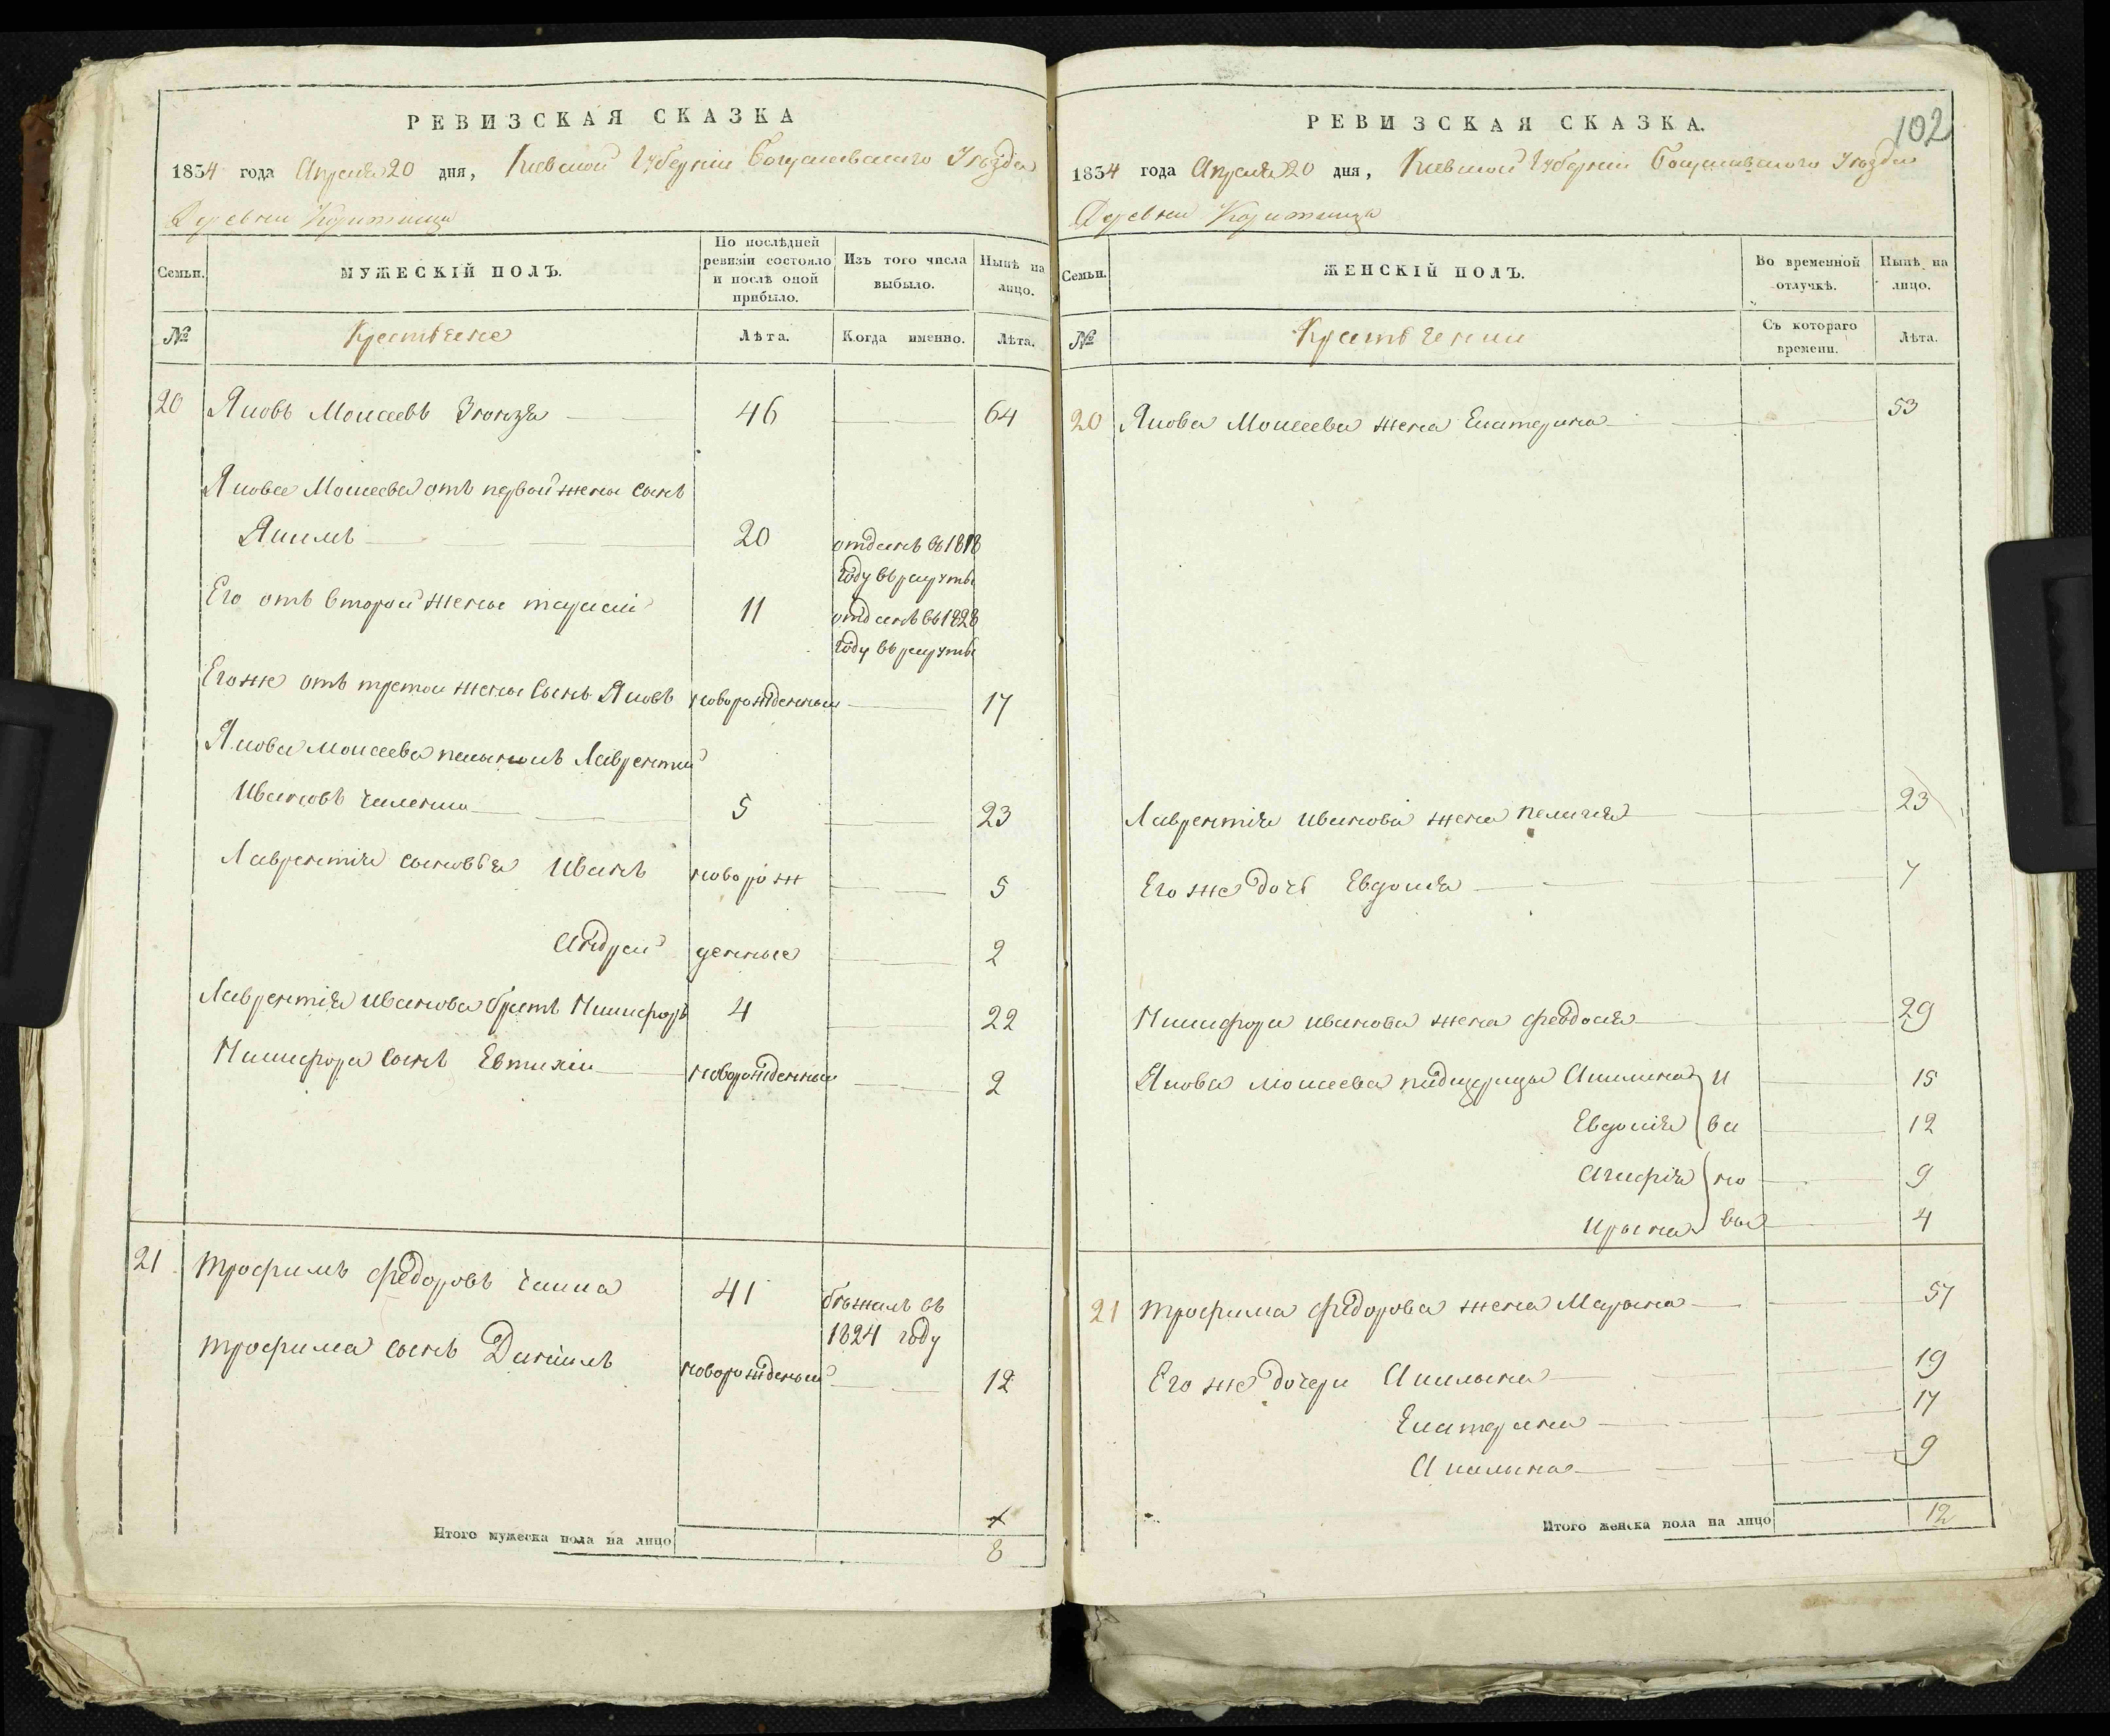 РЕВИЗСКАЯ СКАЗКА
1834 года Апреля 20 дня, Киевской Губерніи Богуславскаго Уѣзда
Деревни
Семьи.
МУЖЕСКІЙ ПОЛЪ.
По послѣдней ревизіи состояло и послѣ оной прибыло.
Изъ того числа выбыло.
Нынѣ на лицо.
№
Крестьяне
Лѣта.
Когда именно.
Лѣта.
20 Яковъ Моисеевъ 46 64
Якова Моисеева отъ первой жены сынъ
Якимъ 20 отданъ въ 1818
году въ рекруты
Его отъ второй жены 11 отданъ въ 1828
году въ рекруты
Его же отъ третой жены сынъ Яковъ новорожденный 17
Якова Моисеева Лаврентий
Ивановъ 5 23
Лаврентія сыновья Иванъ новорож 5
Андрей денные 2
Лаврентія Иванова братъ Никифоръ 4 22
Никифора сынъ Евтихій новорожденный 2
21 Трофимъ Федоровъ 41 бѣжалъ въ
1824 году
Трофима сынъ Данiилъ новорожденый 12
Итого мужеска пола на лицо
8
102
РЕВИЗСКАЯ СКАЗКА.
1834 года Апреля 20 дня, Киевской Губерніи Богуславскаго Уѣзда
Деревни
Семьи.
ЖЕНСКІЙ ПОЛЪ.
Во временной отлучкѣ.
Нынѣ на лицо.
№
Съ котораго времени.
Лѣта.
20 Якова Моисеева жена Екатерина 53
Лаврентія Иванова жена Пелагия 23
Его же дочь Евдокия 7
Никифора Иванова жена Феодосия 29
Якова Моисеева Акилина И 15
Евдокия ва 12
Агафiя но 9
Ирына вы 4
21 Трофима Федорова жена Марына 57
Его же дочери Акилына 19
Екатерина 17
Акилина 9
Итого женска пола на лицо 12